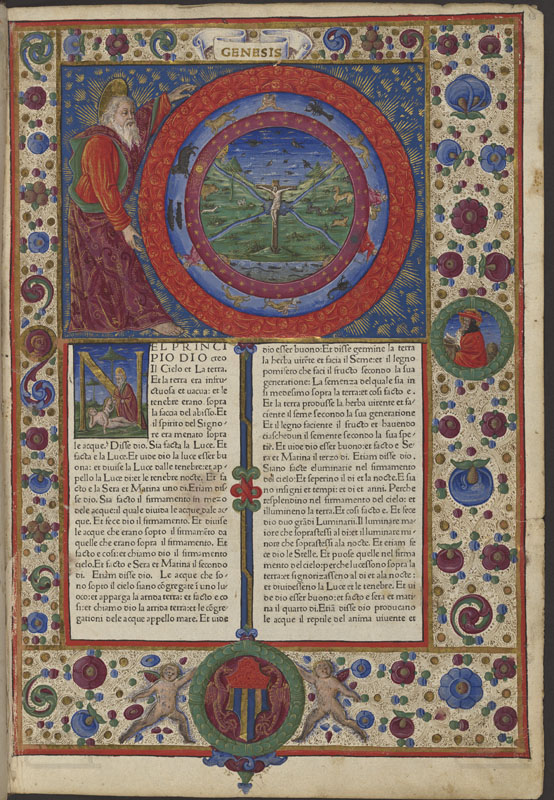 GENESIS
N
EL PRINCI
PIO DIO creo
Il Cielo et La terra.
Et la terra era infru
ctuosa et uacua: et le
tenebre erano sopra
la faccia del abisso. Et
il spirito del Signo
re era menato sopra
le acque. Disse dio. Sia facta la Luce. Et
facta e la Luce. Et uide dio la luce esser bu
ona: et diuise la Luce dalle tenebre: et ap
pello la Luce di: et le tenebre nocte. Et fa
cto e la Sera et Matina uno di. Etiām dis
se dio. Sia facto il firmamento in mezo
dele acque: il quale diuida le acque dale ac
que. Et fece dio il firmamento. Et diuise
le acque che erano sopto il firmamēto da
quelle che erano sopra il firmamento. Et
facto e cosi: et chiamo dio il firmamento
cielo. Et facto e Sera et Matina il secondo
di. Etiām disse dio. Le acque che so
no sopto il cielo siano cōgregate ī uno lu
oco: et apparga la arrida terra: et facto e co
si: et chiamo dio la arrida terra: et le cōgre
gationi dele acque appello mare. Et uide
dio esser buono: Et disse germine la terra
la herba uirēte et facia il Seme: et il legno
pomifero che faci il fructo secondo la sua
generatione: La semenza del quale sia in
si medesimo sopra la terra: et cosi facto e.
Et la terra produsse la herba uirente et fa
ciente il seme secondo la sua generatione
Et il legno faciente il fructo et hauendo
ciaschedun il semente secondo la sua spe
tie. Et uide dio esser buono: et facto e Se
ra et Matina il terzo di. Etiām disse dio.
Siano facte eluminarie nel firmamento
del cielo: Et seperino il di et la nocte. E sia
no insegni et tempi: et di et anni. Perche
resplendino nel firmamento del cielo: et
illumineno la terra. Et cosi facto e. Et fece
dio duo grādi Luminarii. Il luminare ma
iore che soprastessi al di: et il luminare mi
nore che soprastessi ala nocte. Et etiam fe
ce dio le Stelle. Et puose quelle nel firma
mento del cielo: perche lucessono sopra la
terra: et signorizasseno al di et ala nocte:
et diuidesseno la Luce et le tenebre. Et ui
de dio esser buono: et facto e sera et mati
na il quarto di. Etiā disse dio producano
le acque il reptile del anima uiuente et